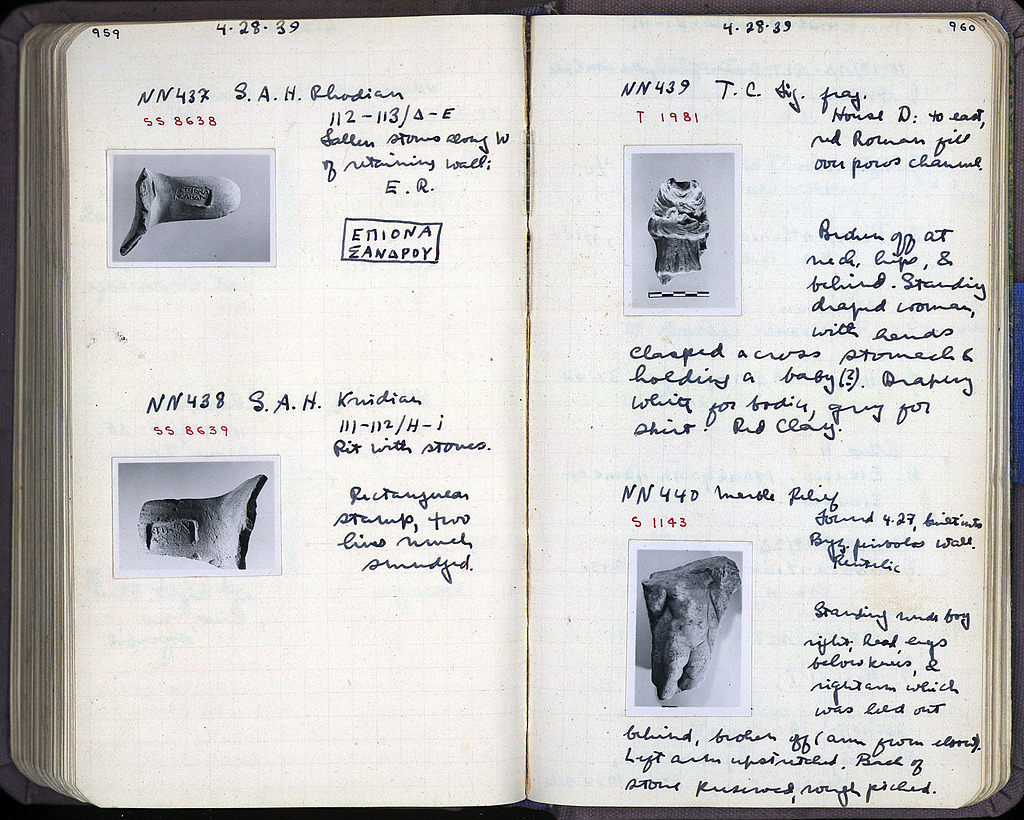 959
4-28-39
NN437 S.A.H. Rhodian
SS 8638
112-113/Δ-E
Fallen stones along W
of retaining wall:
E.R.
ΕΠΙΟΝΑ
ΣΑΝΔΡΟΥ
NN438 S.A.H. Knidian
SS 8639
111-112/H-i
Pit with stones.
Rectangular
stamp, two
lines much
smudged.
960
4-28-39
NN439 T.C. Fig. frag.
T 1981
House D: to east,
red Roman fill
over poros channel.
Broken off at
neck, hips, &
behind. Standing
draped woman,
with hands
clasped across stomach &
holding a baby(?). Drapery
white for bodice, grey for
skirt. Red Clay.
NN440 Marble Relief
S 1143
Found 4.27, built into
Byz. peribolos wall.
Pentelic
Standing nude boy
right, head, legs
below knees, &
right arm which
was held out
behind, broken off (arm from elbow).
Left arm upstretched. Back of
stone preserved, rough picked.